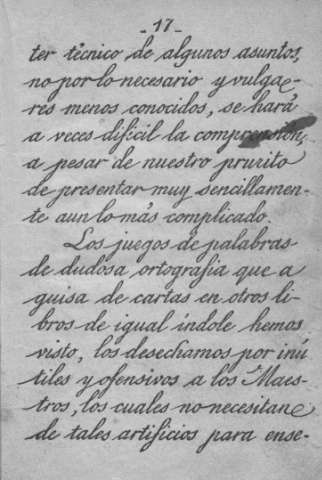 -17-
ter técnico de algunos asuntos,
no por lo necesario y vulga-
res menos conocidos, se hará
a veces difícil la comprensión,
a pesar de nuestro prurito
de presentar muy sencillamen-
te aun lo más complicado.
Los juegos de palabras
de dudosa ortografía que a
guisa de cartas en otros li-
bros de igual índole hemos
visto, los desechamos por inú
tiles y ofensivos a los Maes-
tros, los cuales no necesitan
de tales artificios para ense-